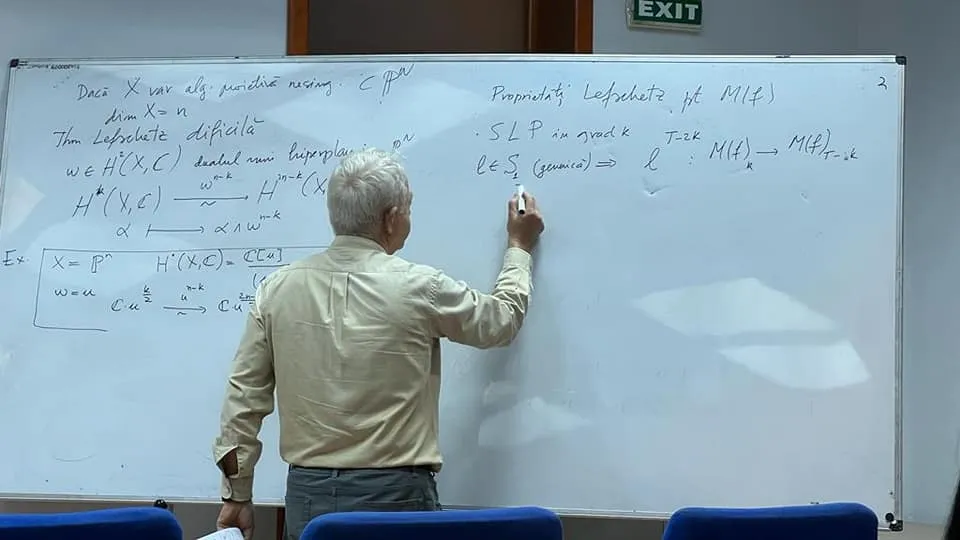 EXIT
2
Dacă X var alg. proiectivă nesing. ⊂ ℙ^N
dim X = n
Thm Lefschetz dificilă
ω ∈ H²(X, ℂ) dualul unui hiperplan ℙ^N
H^k(X, ℂ) —ω^{n-k}→ ~ H^{2n-k}(X,
α ↦ α ∧ ω^{n-k}
Ex.
X = ℙ^n H^•(X, ℂ) = ℂ[u] / (
ω = u
ℂ·u^{k/2} —u^{n-k}→ ~ ℂ u^{2n
Proprietăți Lefschetz pt M(f)
· SLP in grad k
ℓ ∈ S_1 (generică) ⇒ ℓ^{T-2k} : M(f)_k → M(f)_{T-k}